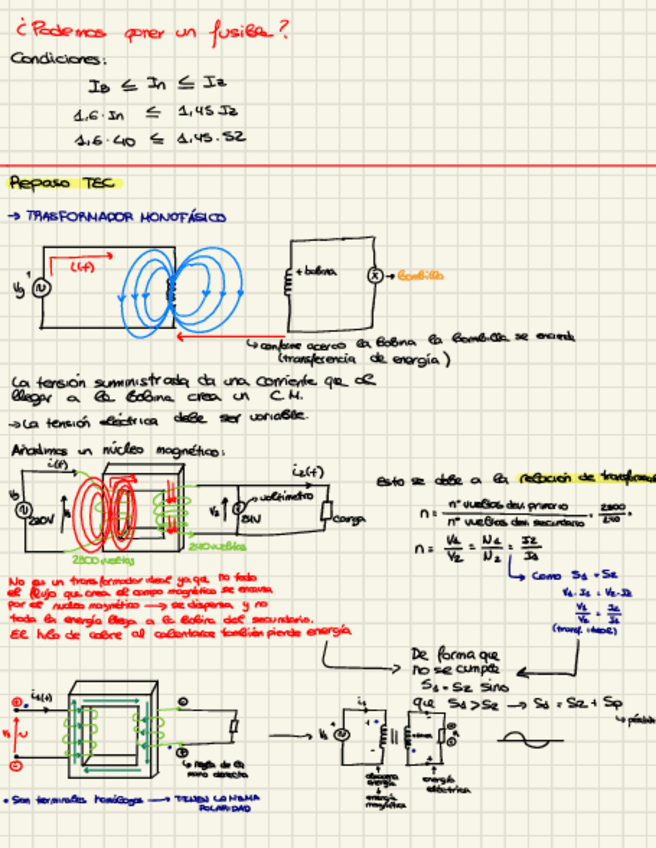 ¿Podemos poner un fusible?
Condiciones:
IB ≤ In ≤ Iz
1,6 · In ≤ 1,45 Iz
1,6 · 40 ≤ 1,45 · 52
Repaso TEC
→ TRASFORMADOR MONOFÁSICO
Vg
i(t)
+ bobina
→ Bombilla
↳ conforme acerco la bobina la bombilla se enciende
(transferencia de energía)
La tensión suministrada da una corriente que al
llegar a la bobina crea un C.M.
→ La tensión eléctrica debe ser variable.
Añadimos un núcleo magnético:
i(t)
i2(t)
220V
V2
voltímetro
carga
2800 vueltas
240 vueltas
Esto se debe a la relación de
n = nº vueltas dev. primario / nº vueltas dev. secundario = 2800 / 240
n = V1 / V2 = N1 / N2 = I2 / I1
↳ Como S1 = S2
V1 · I1 = V2 · I2
V1 / V2 = I2 / I1
(transf. ideal)
No es un transformador ideal ya que no todo
el flujo que crea el campo magnético se
por el nucleo magnético → se dispersa, y no
toda la energía llega a la bobina del secundario.
El hilo de cobre al calentarse también pierde energía
De forma que
no se cumple
S1 = S2 sino
que S1 > S2 → S1 = S2 + Sp
i1(t)
↳ regla de la
mano derecha
energía
magnética
energía
eléctrica
• Son terminales homólogos → TIENEN LA MISMA
POLARIDAD